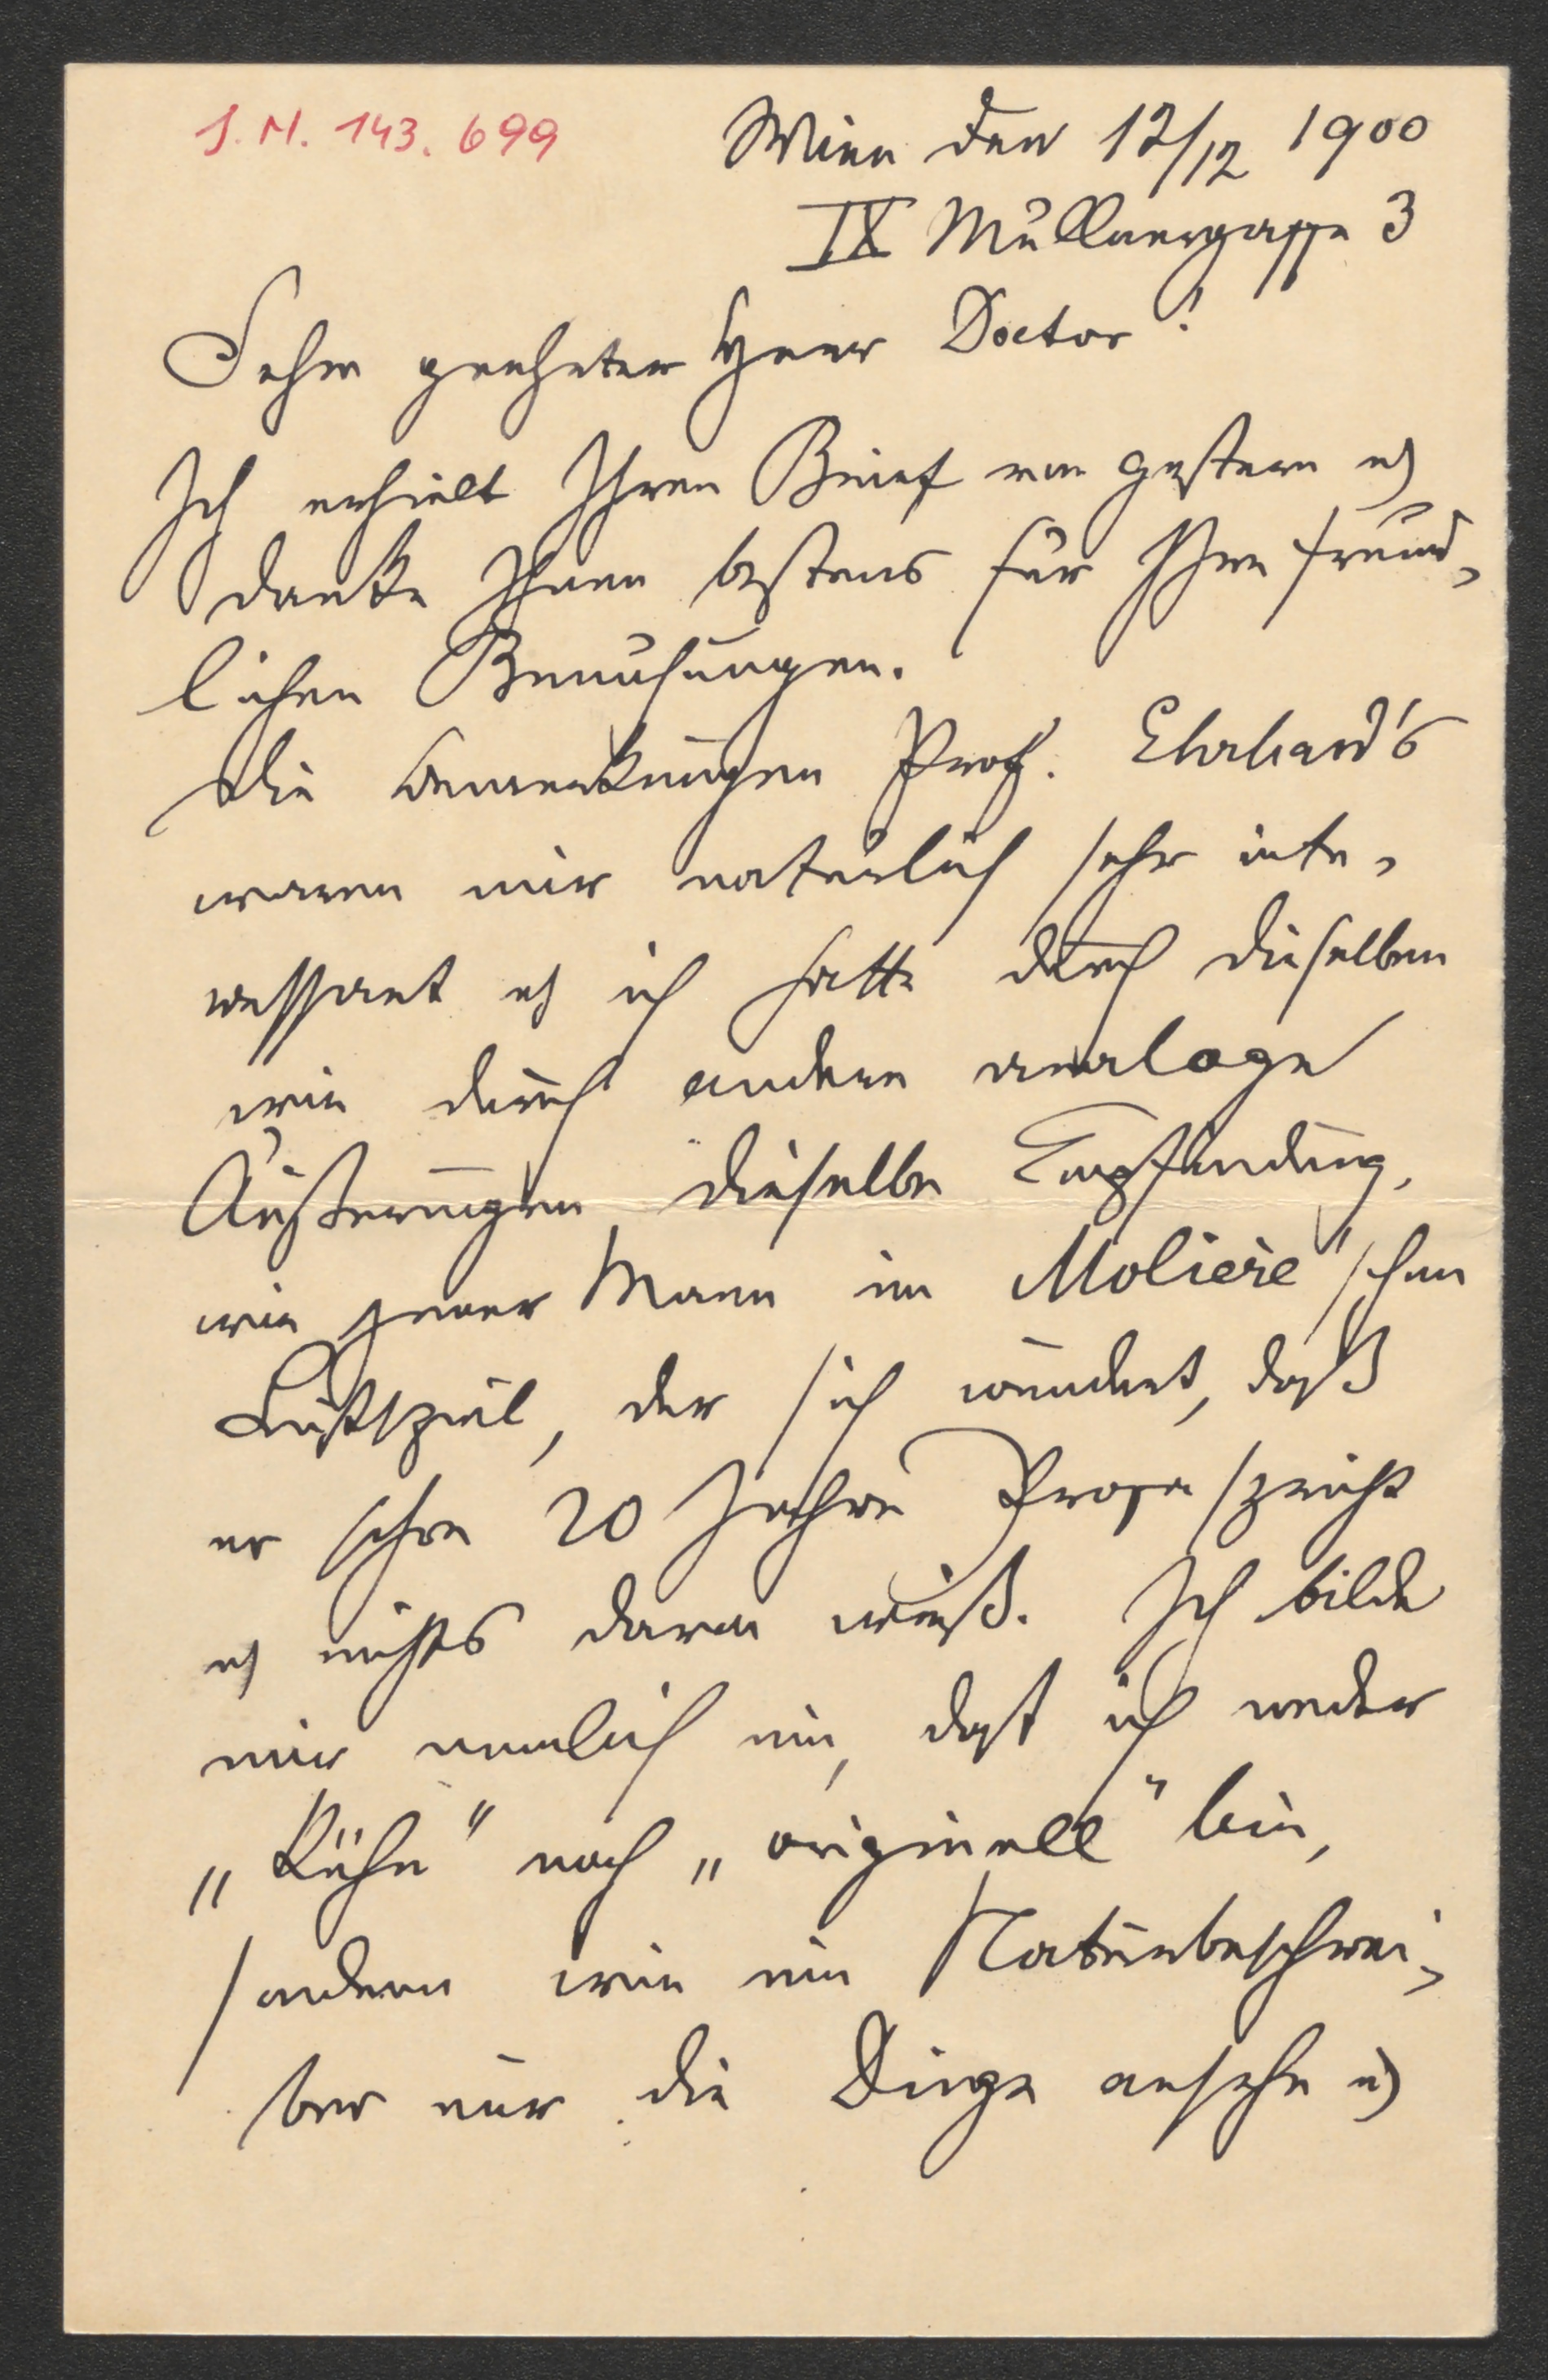 J. N. 143.699
Wien den 12/12 1900
IX Müllnergasse 3
Sehr geehrter Herr Doctor!
Ich erhielt Ihren Brief von gestern u
danke Ihnen bestens für Ihre freund-
lichen Bemühungen.
Die Bemerkungen Prof. Ehrhard's
waren mir natürlich sehr inte-
ressant u ich hatte durch dieselben
wie durch andere analoge
Äußerungen dieselbe Empfindung,
wie jener Mann im Moliere'schen
Lustspiel, der sich wundert, daß
er schon 20 Jahre Prosa spricht
u nichts davon weiß. Ich bilde
mir nemlich ein, daß ich weder
„kühn" noch „originell" bin,
sondern wie ein Naturbeschrei-
ber nur die Dinge ansehe u